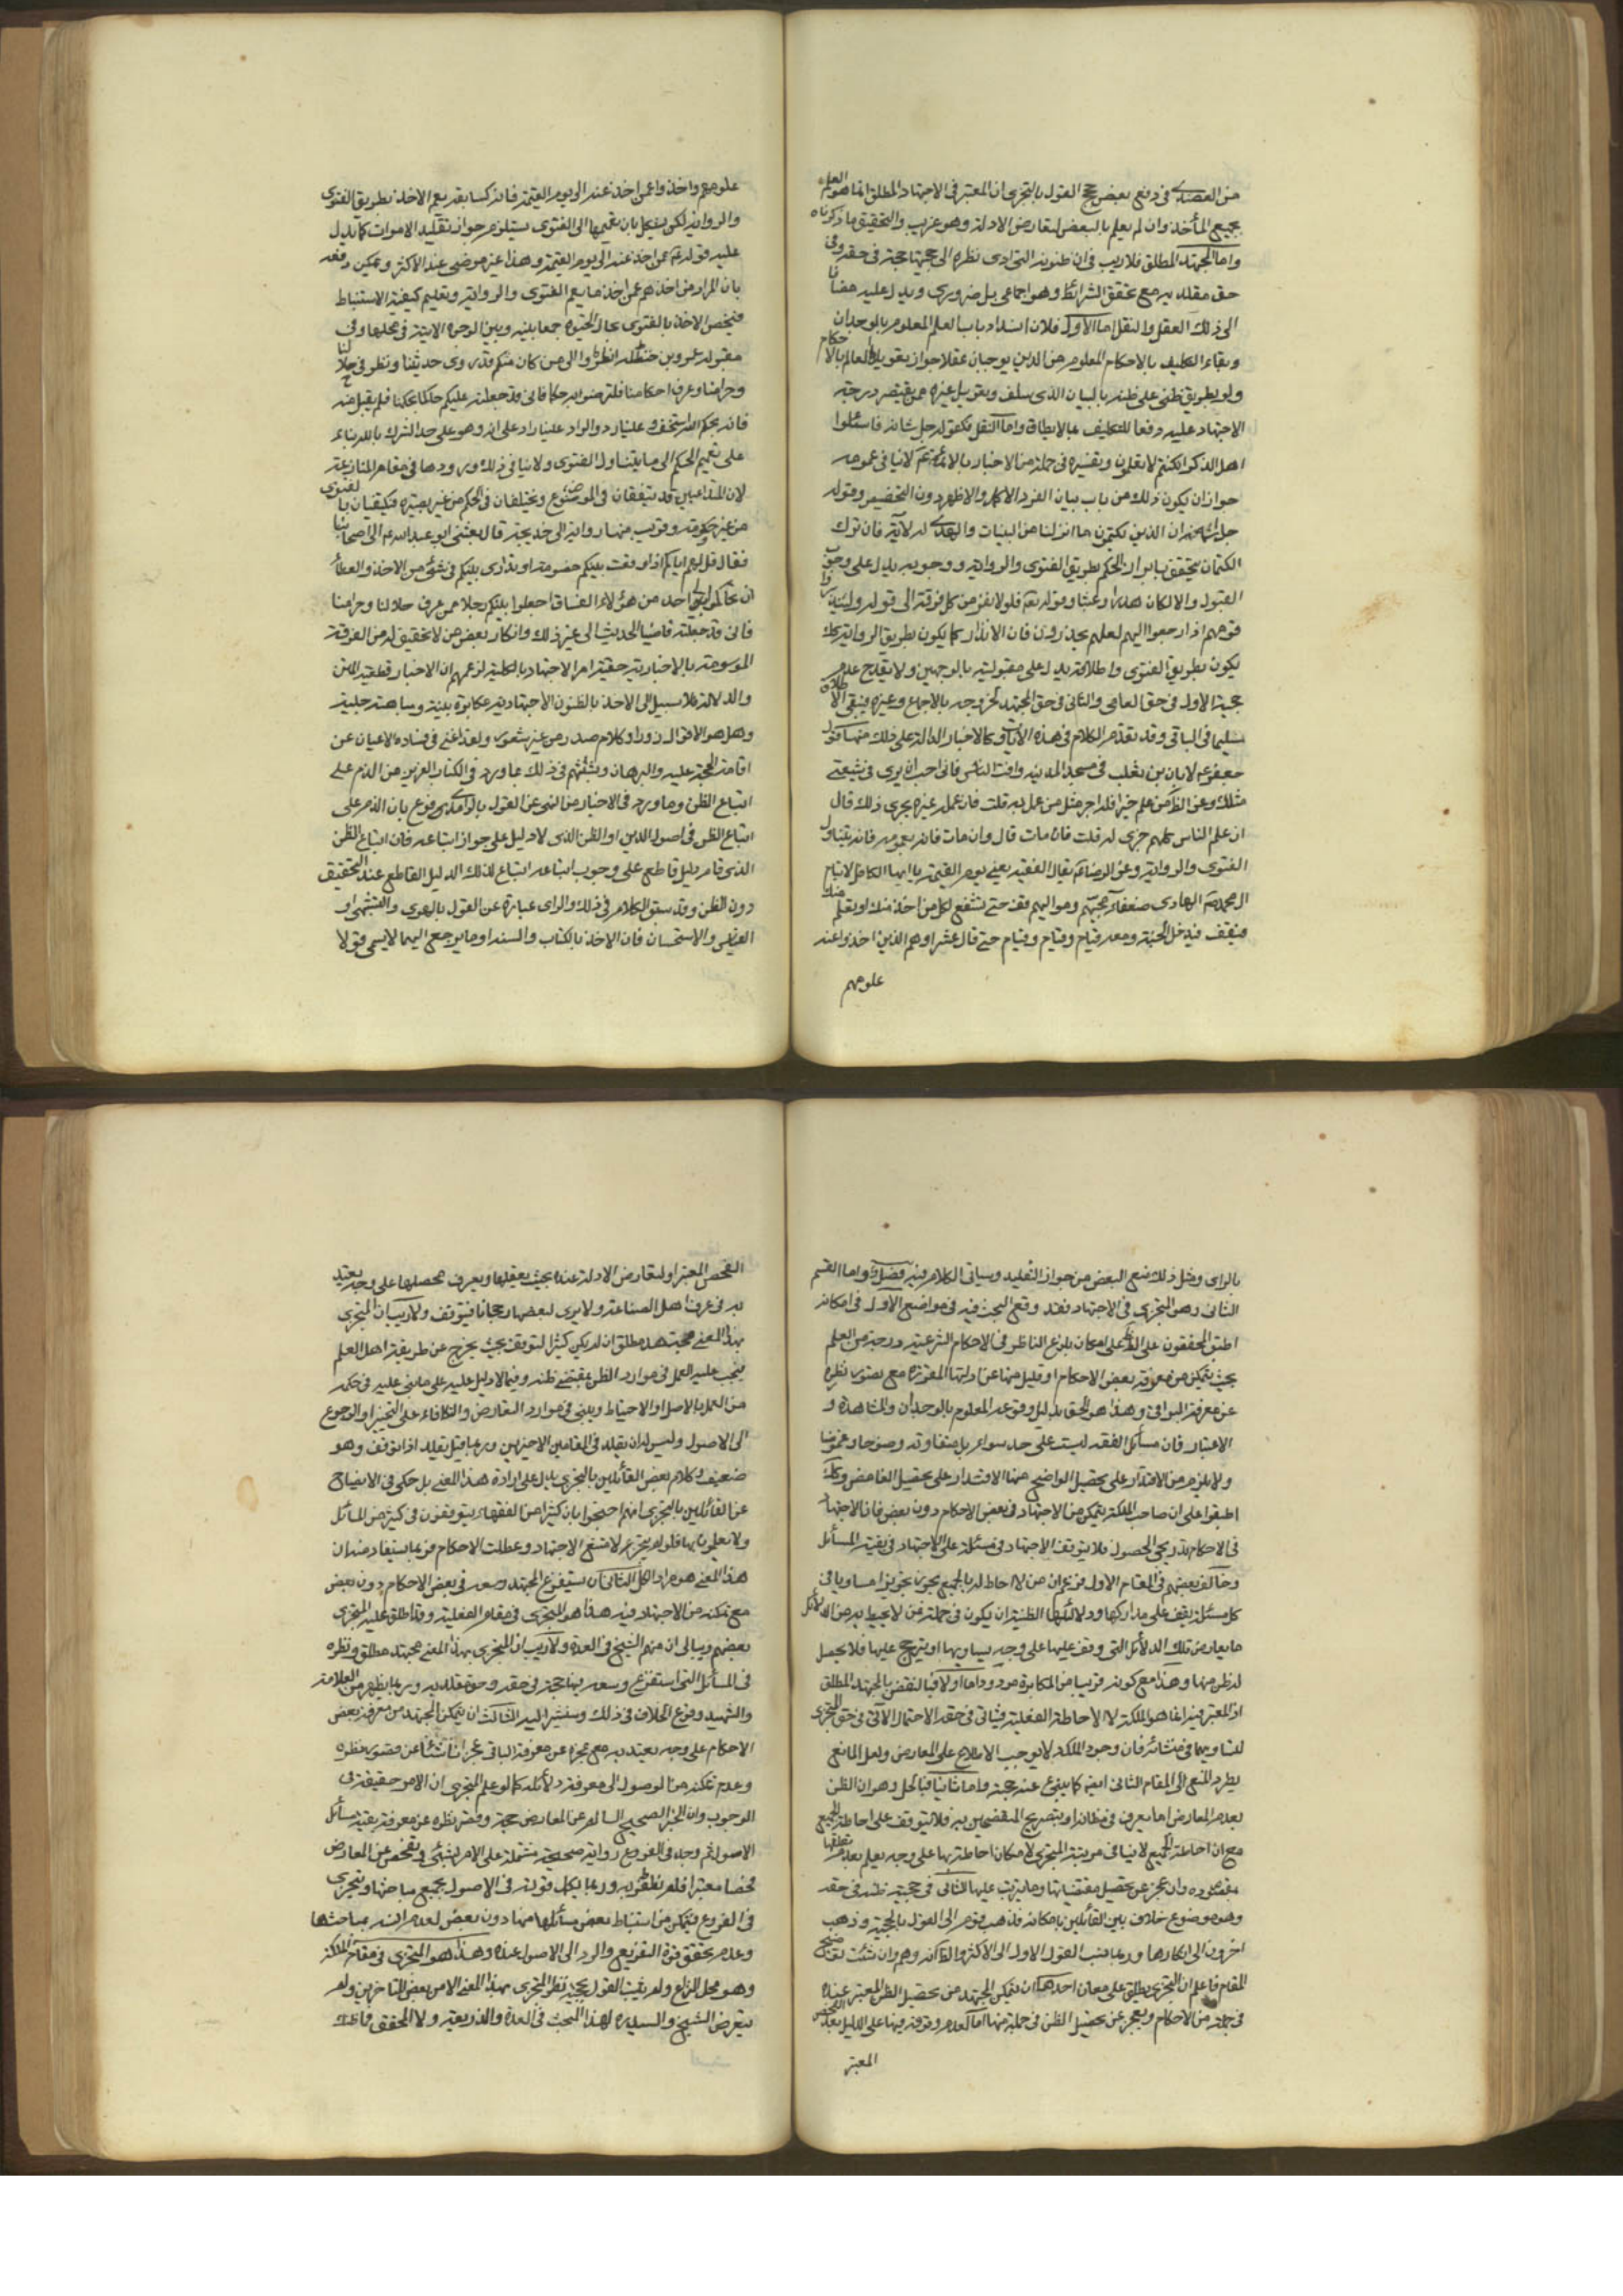 من العضدي في دفع بعض حجج القول بالتجزي ان المعتبر في الاجتهاد المطلق انما هو العلم
بجميع المأخذ وان لم يعلم بالبعض لتعارض الادلة وهو غريب والتحقيق ما ذكرناه
واما المجتهد المطلق فلا ريب في ان ظنونه التي ادى نظره الى حجيتها حجة في حقه وفي
حق مقلديه مع تحقق الشرائط وهو اجماعي بل ضروري ويدل عليه مضافا
الى ذلك العقل والنقل اما الاول فلان انسداد باب العلم المعلوم بالوجدان
وبقاء التكليف بالاحكام المعلوم من الدين يوجبان عقلا جواز تعويل العالم بالاحكام
ولو بطريق ظني على ظنه بالبيان الذي سلف وتعويل غيره ممن يقتصر درجته
الاجتهاد عليه دفعا للتكليف بما لا يطاق واما النقل فكقوله جل شانه فاسئلوا
اهل الذكر ان كنتم لا تعلمون وتفسيره في جملة من الاخبار بالائمة ع لا ينافي عمومه
جواز ان يكون ذلك من باب بيان الفرد الاكمل والاظهر دون التخصيص وقوله
جل شانه ان الذين يكتمون ما انزلنا من البينات والهدى الآية فان ترك
الكتمان يتحقق بابراز الحكم بطريق الفتوى والرواية ووجوبه يدل على وجوب
القبول والا لكان هدرا وعبثا وقوله تعالى فلولا نفر من كل فرقة الى قوله ولينذروا
قومهم اذا رجعوا اليهم لعلهم يحذرون فان الانذار كما يكون بطريق الرواية كك
يكون بطريق الفتوى واطلاقه يدل على مقبوليته بالوجهين ولا يقدح عدم
حجية الاول في حق العامي والثاني في حق المجتهد لخروجه بالاجماع وغيره فيبقى الاطلاق
سليما في الباقي وقد تقدم الكلام في هذه الآيات وكالاخبار الدالة على ذلك منها قول
جعفر ع لابان بن تغلب في مسجد المدينة وافت الناس فاني احب ان يرى في شيعتي
مثلك وعن الكاظم من علم خيرا فله اجر مثل من عمل به قلت فان عمل غيره يجري ذلك قال
ان علم الناس كلهم جرى له قلت فان مات قال وان مات فانه بعمومه فانه يتناول
الفتوى والرواية وعن الرضا ع يقال الفقيه يعني يوم القيمة يا ايها الكافل لايتام
ال محمد ع الهادي ضعفاء محبيهم ومواليهم قف حتى تشفع لكل من اخذ عنك او تعلم منك
فيقف فيدخل الجنة ومعه فئام وفئام وفئام حتى قال عشرا وهم الذين اخذوا عنه
علومهم
علومهم واخذوا عمن اخذ عنه الى يوم القيمة فانه كسابقه يعم الاخذ بطريق الفتوى
والرواية لكن يشكل بان تعميمها الى الفتوى يستلزم جواز تقليد الاموات كما يدل
عليه قوله ع عمن اخذ عنه الى يوم القيمة وهذا غير مرضي عند الاكثر ويمكن دفعه
بان المراد من اخذهم عمن اخذ ما يعم الفتوى والرواية وتعليم كيفية الاستنباط
فيخص الاخذ بالفتوى بحال الحيوة جمعا بينه وبين الوجوه الاتية في محلها وفي
مقبولة عمر بن حنظلة انظروا الى من كان منكم قد روى حديثنا ونظر في حلالنا
وحرامنا وعرف احكامنا فلترضوا به حكما فاني قد جعلته عليكم حاكما فاذا حكم بحكمنا فلم يقبل منه
فانه بحكم الله استخف وعلينا رد والراد علينا راد على الله وهو على حد الشرك بالله بناء
على تعميم الحكم الى ما يتناول الفتوى ولا ينافي ذلك ورودها في مقام المنازعة
لان المتداعيين قد يتفقان في الموضوع ويختلفان في الحكم من غير بصيرة فيكتفيان بالفتوى
من غير حكومة وقريب منها رواية ابي خديجة قال بعثني ابو عبد الله ع الى اصحابنا
فقال قل لهم اياكم اذا وقعت بينكم خصومة او تدارى بينكم في شيء من الاخذ والعطاء
ان تحاكموا الى احد من هؤلاء الفساق اجعلوا بينكم رجلا ممن عرف حلالنا وحرامنا
فاني قد جعلته قاضيا الحديث الى غير ذلك وانكار بعض من لا تحقيق له من الفرقة
الموسومة بالاخبارية حقية امر الاجتهاد بالكلية لزعمهم ان الاخبار قطعية المتن
والدلالة فلا سبيل الى الاخذ بالظنون الاجتهادية مكابرة بينة ومباهتة جلية
وهل هو الا قول زور او كلام صدر من غير شعور ولقد اغنى في فساده الاعيان عن
اقامة الحجة عليه والبرهان وتشبثهم في ذلك بما ورد في الكتاب العزيز من الذم على
اتباع الظن وما ورد في الاخبار من النهي عن القول بالراي مدفوع بان الذم على
اتباع الظن في اصول الدين او الظن الذي لا دليل على جواز اتباعه فان اتباع الظن
الذي قام دليل قاطع على وجوب اتباعه اتباع لذلك الدليل القاطع عند التحقيق
دون الظن وقد سبق الكلام في ذلك والراي عبارة عن القول بالهوى والتشهي او
القياس والاستحسان فان الاخذ بالكتاب والسنة او ما يرجع اليهما لا يسمى قولا
بالراي ومثل ذلك منع البعض من جواز التقليد وسياتي الكلام فيه مفصلا واما القسم
الثاني وهو التجزي في الاجتهاد فقد وقع البحث فيه في مواضع الاول في امكانه
اطبق المحققون على الظ على امكان بلوغ الناظر في الاحكام الشرعية درجة من العلم
بحيث يتمكن من معرفة بعض الاحكام او قليل منها عن ادلتها المقررة مع قصور نظره
عن معرفة البواقي وهذا هو الحق بدليل وقوعه المعلوم بالوجدان والمشاهدة و
الاعتبار فان مسائل الفقه ليست على حد سواء بل متفاوتة وضوحا وغموضا
ولا يلزم من الاقتدار على تحصيل الواضح منها الاقتدار على تحصيل الغامض وكانه
اطبقوا على ان صاحب الملكة يتمكن من الاجتهاد في بعض الاحكام دون بعض فان الاجتهاد
في الاحكام تدريجي الحصول فلا يتوقف الاجتهاد في مسئلة على الاجتهاد في بقية المسائل
وخالف بعضهم في المقام الاول فزعم ان من لا احاطة له بالجميع يجوز تجويزا مساويا في
كل مسئلة يقف على مداركها ودلائلها الظنية ان يكون في جملة من لا يحيط به من الدلائل
ما يعارض تلك الدلائل التي وقف عليها على وجه يساويها او يترجح عليها فلا يحصل
له ظن منها وهذا مع كونه قريبا من المكابرة مردود اما اولا فبالنقض بالمجتهد المطلق
اذ المعتبر فيه انما هو الملكة لا الاحاطة الفعلية فياتي في حقه الاحتمال الاتي في حق المتجزي
لتساويهما في منشائه فان وجود الملكة لا يوجب الاطلاع على المعارض ولعل المانع
يطرد المنع الى المقام الثاني ايضا كما ينبئ عنه حجته واما ثانيا فبالحل وهو ان الظن
بعدم المعارض اما يعرف في مظانه او بتصريح المتفحصين به فلا يتوقف على احاطة الجميع
مع ان احاطة الجميع لا ينافي مرتبة المتجزي لامكان احاطته بها على وجه يعلم بعدم تعلقها
بمقصوده وان عجز عن تحصيل مقتضياتها وما يترتب عليها الثاني في حجية ظنه في حقه
وهو موضوع خلاف بين القائلين بامكانه فذهب قوم الى القول بالحجية وذهب
اخرون الى انكارها وربما ينسب القول الاول الى الاكثر والظ انه وهم وان شئت توضيح
المقام فاعلم ان التجزي يطلق على معان احدها ان يتمكن المجتهد من تحصيل الظن المعتبر عنده
في جملة من الاحكام ويعجز عن تحصيل الظن في جملة منها اما لعدم وقوفه فيها على الدليل بعد الفحص
المعتبر
الفحص المعتبر او لتعارض الادلة عنده بحيث يعقلها ويعرف محصلها على وجه يعتد
به في عرف اهل الصناعة ولا يرى لبعضها رجحانا فيتوقف ولا ريب ان المتجزي
بهذا المعنى مجتهد مطلق ان لم يكن كثير التوقف بحيث يخرج عن طريقة اهل العلم
فيجب عليه العمل في موارد الظن بمقتضى ظنه وفيما لا دليل عليه على ما بنى عليه في حكمه
من العمل بالاصل او الاحتياط ويبني في موارد التعارض والتكافؤ على التخيير او الرجوع
الى الاصول وليس له ان يقلد في المقامين الاخيرين وربما قيل يقلد اذا توقف وهو
ضعيف وكلام بعض القائلين بالتجزي يدل على ارادة هذا المعنى بل حكى في الايضاح
عن القائلين بالتجزي انهم احتجوا بان كثيرا من الفقهاء يتوقفون في كثير من المسائل
ولا يعلمون بها فلو لم يتجز لامتنع الاجتهاد وعطلت الاحكام فربما يستفاد منه ان
هذا المعنى هو مراد الكل الثاني ان يستفرغ المجتهد وسعه في بعض الاحكام دون بعض
مع تمكنه من الاجتهاد فيه هذا هو التجزي في مقام الفعلية وقد اطلق عليه المتجزي
بعضهم وببالي ان منهم الشيخ في العدة ولا ريب ان المتجزي بهذا المعنى مجتهد مطلق ونظره
في المسائل التي استفرغ وسعه فيها حجة في حقه وحق مقلديه وربما يظهر من العلامة
والشهيد وقوع الخلاف في ذلك وسنشير اليه الثالث ان يتمكن المجتهد من معرفة بعض
الاحكام على وجه يعتد به مع عجزه عن معرفة الباقي عجزا ناشئا عن قصور نظره
وعدم تمكنه من الوصول الى معرفة دلائله كما لو علم المتجزي ان الامر حقيقة في
الوجوب وان الخبر الصحيح السالم عن المعارض حجة وقصر نظره عن معرفة بقية مسائل
الاصول ثم وجد في الفروع رواية صحيحة مشتملة على الامر بشيء وتفحص عن المعارض
فحصا معتبرا فلم يظفر به وربما يكمل قوته في الاصول بجميع مباحثها ويتجزى
في الفروع فيتمكن من استنباط بعض مسائلها منها دون بعض لعدم انسه بمباحثها
وعدم تحقق قوة التفريع والرد الى الاصول عنده وهذا هو التجزي في مقام الملكة
وهو محل النزاع ولم يثبت القول بحجية نظر المتجزي بهذا المعنى الا من بعض المتاخرين ولم
يتعرض الشيخ والسيد ره لهذا البحث في العدة والذريعة ولا المحقق فاظنه